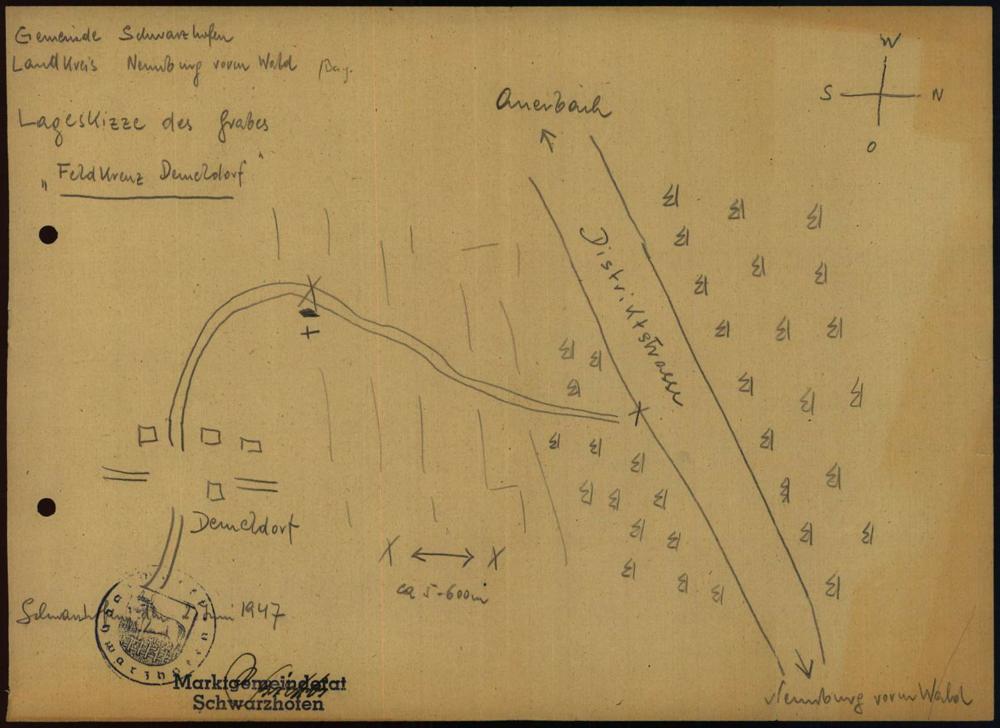 Gemeinde Schwarzhofen
Landkreis Neunburg vorm Wald Bay.
Lageskizze des Grabes
"Feldkreuz Demeldorf"
W
S N
O
Auerbach
Distriktstrasse
Demeldorf
X ↔ X
ca 5-600m
Juni 1947
Schwarzhofen
Marktgemeinderat
Schwarzhofen
Neunburg vorm Wald